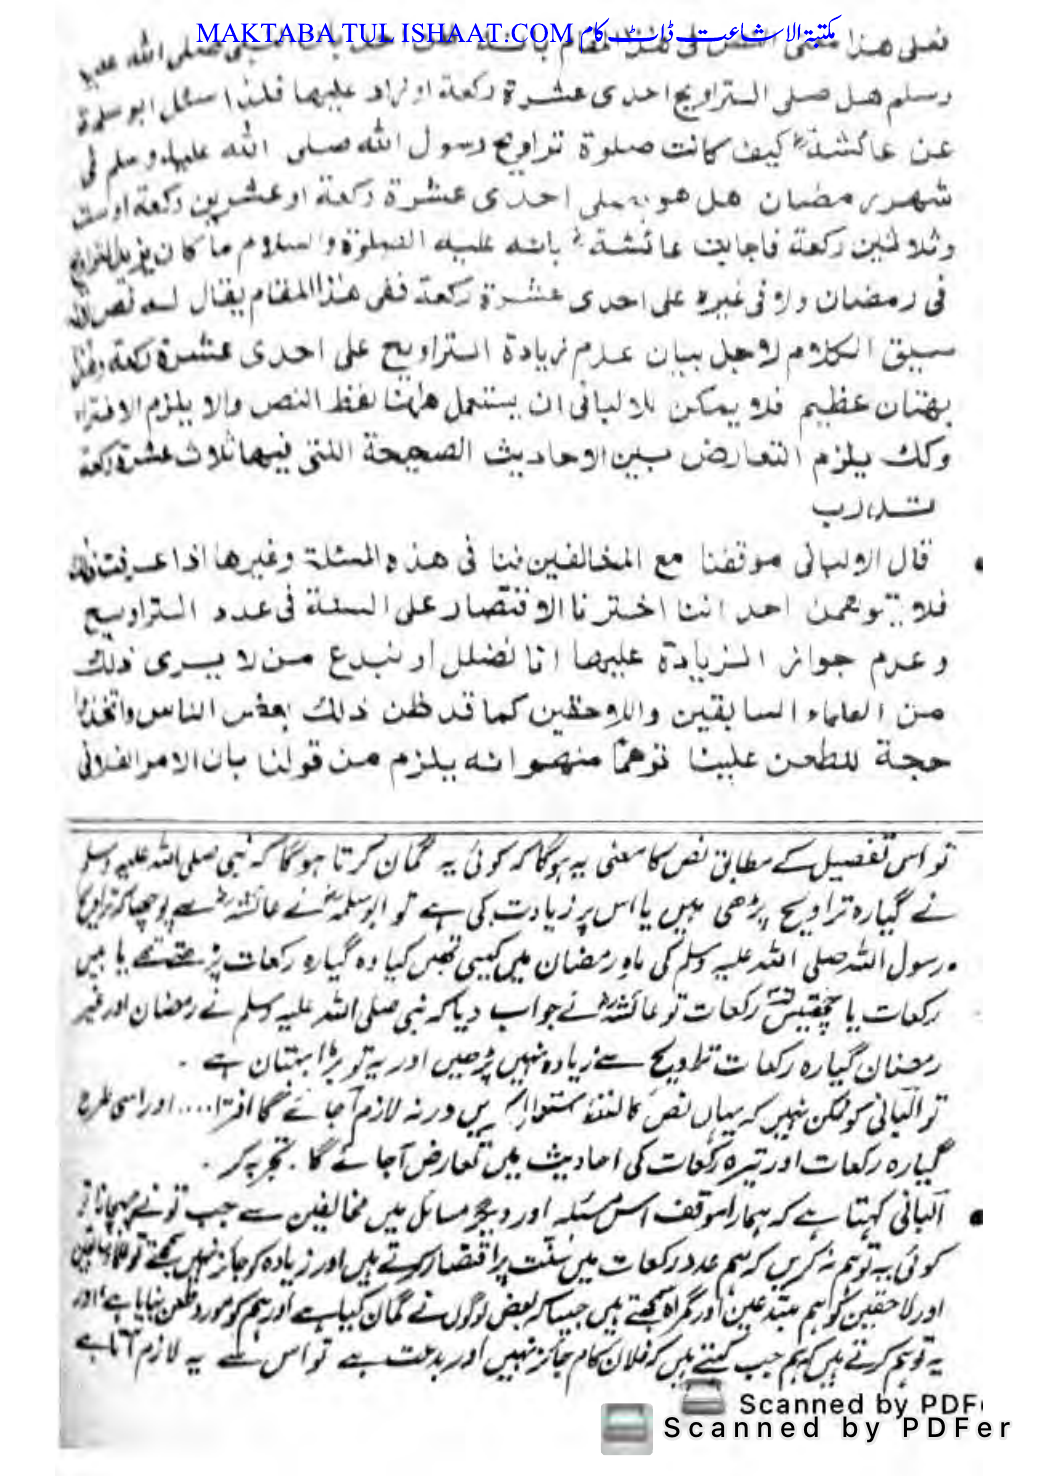 MAKTABA TUL ISHAAT.COM مکتبۃ الاشاعت ڈاٹ کام
فعلى هذا معنى النص فى هذا المقام بانه صلى الله عليه
وسلم هل صلى التراويح احدى عشرة ركعة او زاد عليها فلذا سئل ابو سلمة
عن عائشةؓ كيف كانت صلوة تراويح رسول الله صلى الله عليه وسلم فى
شهر رمضان هل هو يصلى احدى عشرة ركعة او عشرين ركعة او ست
وثلاثين ركعة فاجابت عائشةؓ بانه عليه الصلوة والسلام ما كان يزيد التراويح
فى رمضان ولا فى غيره على احدى عشرة ركعة ففى هذا المقام يقال له نص
سيق الكلام لاجل بيان عدم زيادة التراويح على احدى عشرة ركعة
بهتان عظيم فلا يمكن للالبانى ان يستعمل ههنا لفظ النص والا يلزم الافتراء
وكك يلزم التعارض بين الاحاديث الصحيحة التى فيها ثلاث عشرة ركعة
تدرب
• قال الالبانى موقفنا مع المخالفين لنا فى هذه المسئلة وغيرها اذا عرفت
فلا يتوهمن احد اننا اخترنا الاقتصار على السنة فى عدد التراويح
وعدم جواز الزيادة عليها انا نضلل او نبدع من لا يرى ذلك
من العلماء السابقين واللاحقين كما قد ظن ذلك بعض الناس واتخذه
حجة للطعن علينا توهمًا منهم انه يلزم من قولنا بان الامر الفلانى
تو اس تفصیل کے مطابق نص کا معنی یہ ہوگا کہ کوئی یہ گمان کرتا ہوگا کہ نبی صلی اللہ علیہ وسلم
نے گیارہ تراویح پڑھی ہیں یا اس پر زیادت کی ہے تو ابو سلمہؒ نے عائشہؓ سے پوچھا کہ تراویح
رسول اللہ صلی اللہ علیہ وسلم کی ماہ رمضان میں کیسی تھیں کیا وہ گیارہ رکعات پڑھتے تھے یا بیس
رکعات یا چھتیس رکعات تو عائشہؓ نے جواب دیا کہ نبی صلی اللہ علیہ وسلم نے رمضان اور غیر
رمضان گیارہ رکعات تراویح سے زیادہ نہیں پڑھیں اور یہ تو بڑا بہتان ہے ۔
تو البانی کو ممکن نہیں کہ یہاں نص کا لفظ استعمال کریں ورنہ لازم آجائے گا افتراء .... اور اسی طرح
گیارہ رکعات اور تیرہ رکعات کی احادیث میں تعارض آجائے گا ۔ تجربہ کر ۔
• البانی کہتا ہے کہ ہمارا موقف اس مسئلہ اور دیگر مسائل میں مخالفین سے جب تو نے پہچانا تو
کوئی یہ توہم نہ کریں کہ ہم عدد رکعات میں سنت پر اقتصار کرتے ہیں اور زیادہ کو جائز نہیں سمجھتے تو علماء سابقین
اور لاحقین کو ہم مبتدعین اور گمراہ سمجھتے ہیں جیسا کہ بعض لوگوں نے گمان کیا ہے اور ہم کو مورد طعن بنایا ہے اور
یہ توہم کرتے ہیں کہ ہم جب کہتے ہیں کہ فلان کام جائز نہیں اور بدعت ہے تو اس سے یہ لازم آتا ہے
Scanned by PDF
Scanned by PDFer